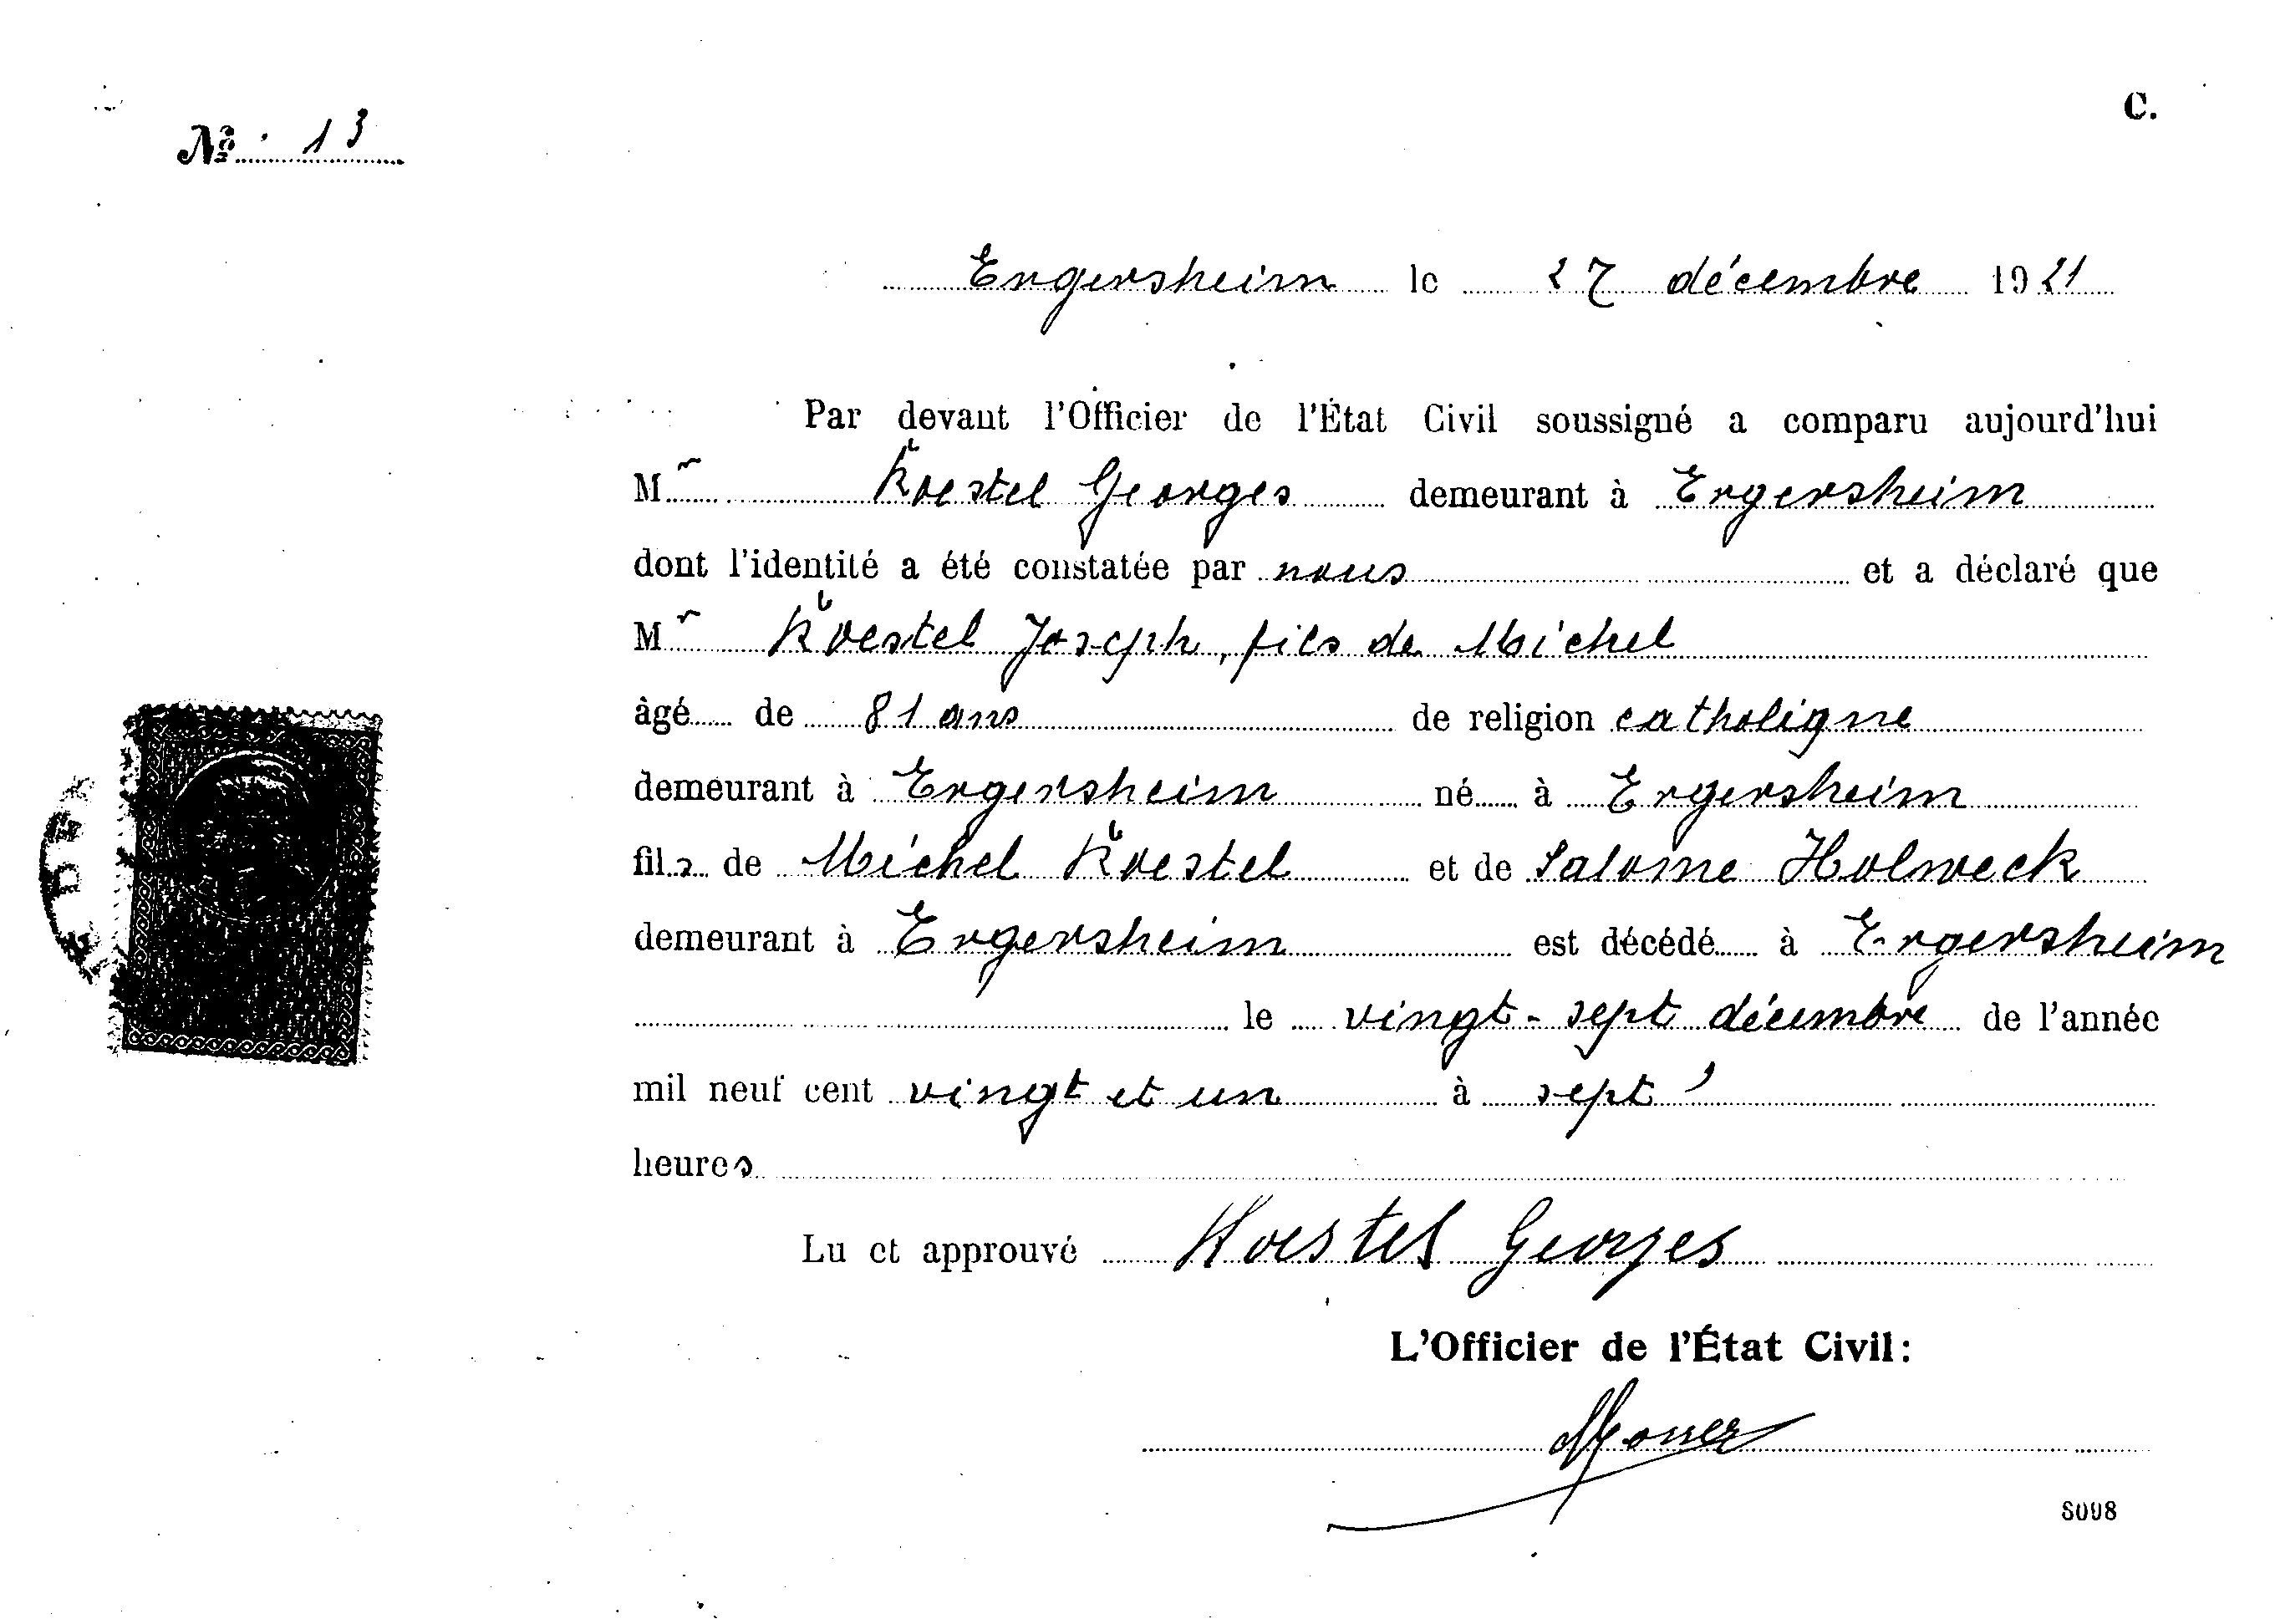 C.
Nº 13
Ergersheim le 27 décembre 1921
Par devant l'Officier de l'État Civil soussigné a comparu aujourd'hui
Mr Koestel Georges demeurant à Ergersheim
dont l'identité a été constatée par nous et a déclaré que
Mr Koestel Joseph, fils de Michel
âgé de 81 ans de religion catholique
demeurant à Ergersheim né à Ergersheim
fils de Michel Koestel et de Salome Holweck
demeurant à Ergersheim est décédé à Ergersheim
le vingt-sept décembre de l'année
mil neuf cent vingt et un à sept
heures
Lu et approuvé Koestel Georges
L'Officier de l'État Civil:
8098